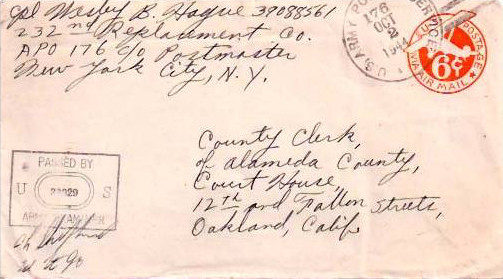 Cpl Wesley B. Hague 39088561
232nd Replacement Co.
APO 176 c/o Postmaster
New York City, N.Y.
U.S. ARMY
176
OCT
2
1944
U.S. POSTAGE
6¢
VIA AIR MAIL
County Clerk,
of Alameda County,
Court House,
12th and Fallon Streets,
Oakland, Calif.
PASSED BY
U S
ARMY EXAMINER